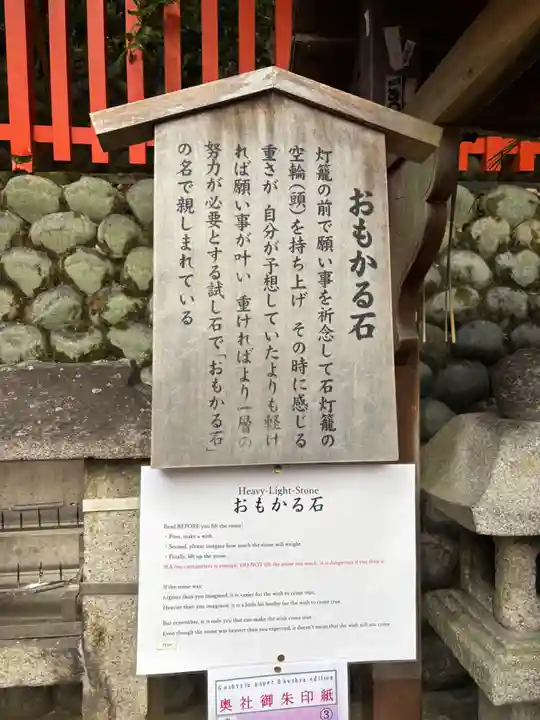 おもかる石
灯籠の前で願い事を祈念して石灯籠の
空輪(頭)を持ち上げ その時に感じる
重さが 自分が予想していたよりも軽け
れば願い事が叶い 重ければより一層の
努力が必要とする試し石で「おもかる石」
の名で親しまれている
Heavy-Light-Stone
おもかる石
Read BEFORE you lift the stone!
・First, make a wish.
・Second, please imagine how much the stone will weigh.
・Finally, lift up the stone.
DO NOT lift the stone too much, it is dangerous if you drop it.
If the stone was:
Lighter than you imagined, it is easier for the wish to come true.
Heavier than you imagined, it is a little bit harder for the wish to come true.
But remember, it is only you that can make the wish come true.
Even though the stone was heavier than you expected, it doesn't mean that the wish will not come
true.
Goshuin paper Okusha edition
奥社御朱印紙
③